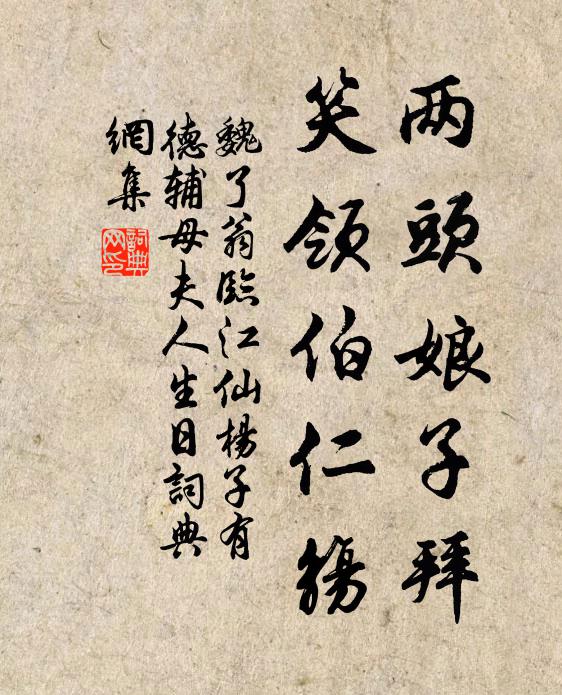 两頭娘子拜
笑領伯仁觴
魏了翁臨江仙楊子有
德辅母夫人生日詞典
網集
詞典网印